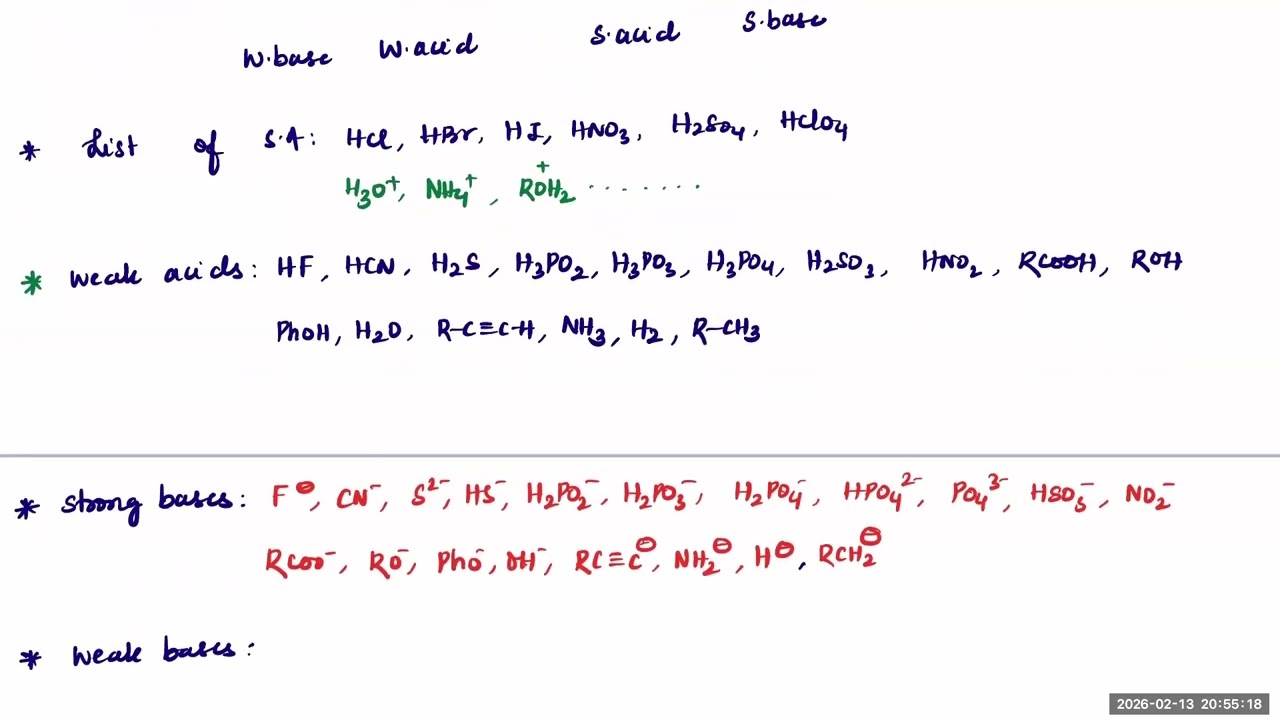 W.base W.acid S.acid S.base
* List of S.A: HCl, HBr, HI, HNO3, H2SO4, HClO4
H3O+, NH4+, ROH2+ ........
* weak acids: HF, HCN, H2S, H3PO2, H3PO3, H3PO4, H2SO3, HNO2, RCOOH, ROH
PhOH, H2O, R-C≡C-H, NH3, H2, R-CH3
* strong bases: F⊖, CN-, S2-, HS-, H2PO2-, H2PO3-, H2PO4-, HPO4 2-, PO4 3-, HSO3-, NO2-
RCOO-, RO-, PhO-, OH-, RC≡C⊖, NH2⊖, H⊖, RCH2⊖
* weak bases:
2026-02-13 20:55:18